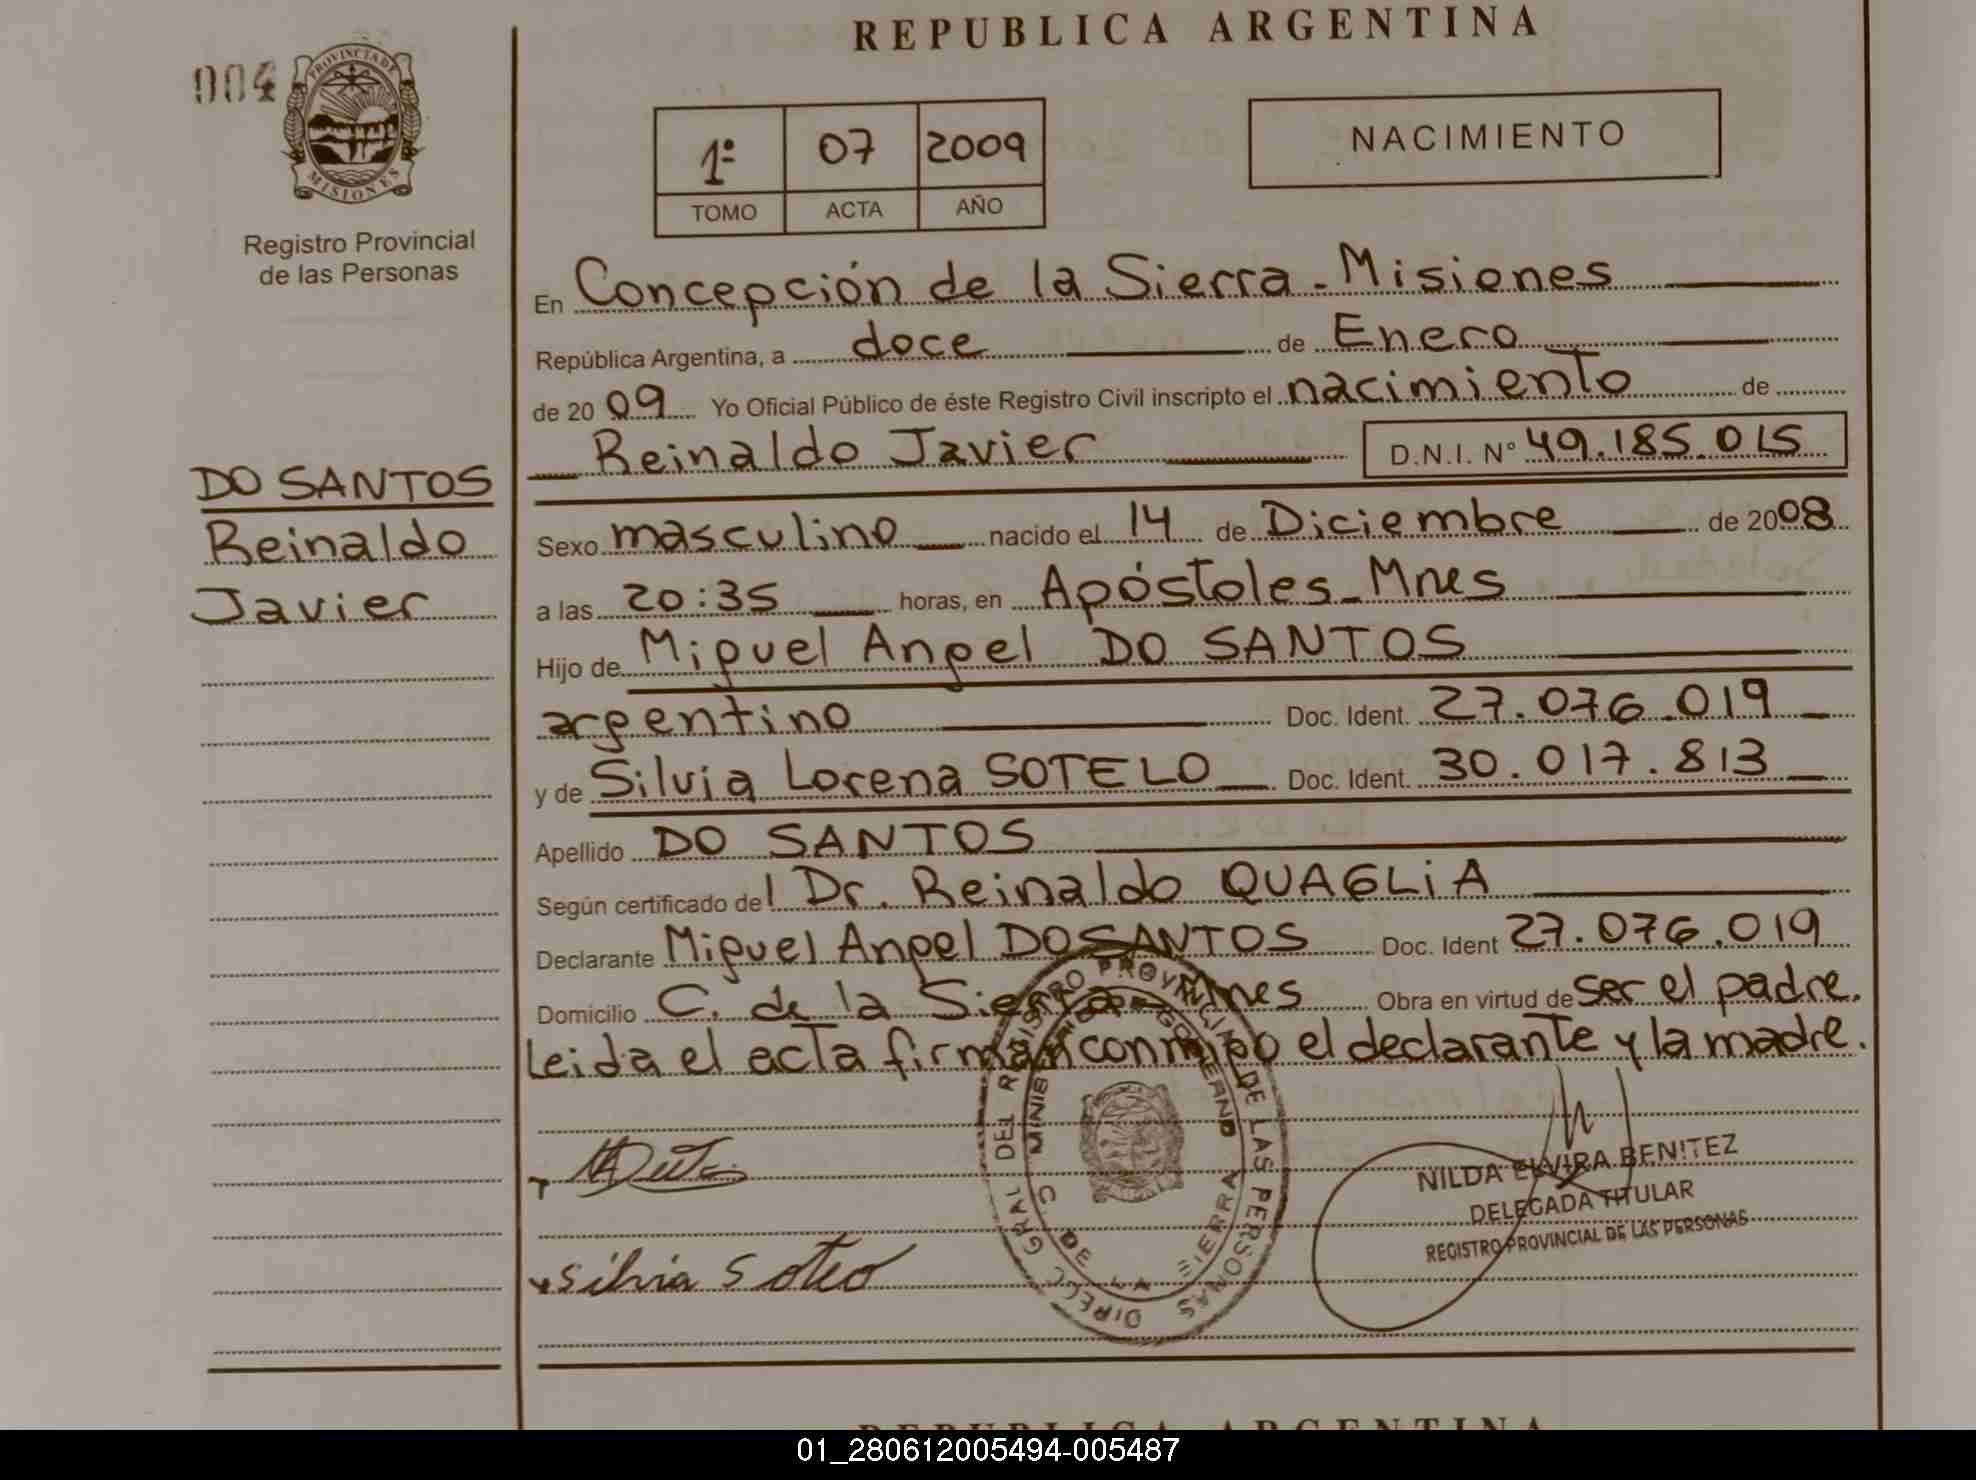 REPUBLICA ARGENTINA
004
PROVINCIA DE
MISIONES
Registro Provincial
de las Personas
1º 07 2009
TOMO ACTA AÑO
NACIMIENTO
En Concepción de la Sierra - Misiones
República Argentina, a doce de Enero
de 2009 Yo Oficial Público de éste Registro Civil inscripto el nacimiento de
Reinaldo Javier D.N.I. Nº 49.185.015
DO SANTOS
Reinaldo
Javier
Sexo masculino nacido el 14 de Diciembre de 2008
a las 20:35 horas, en Apóstoles - Mnes
Hijo de Miguel Angel DO SANTOS
argentino Doc. Ident. 27.076.019
y de Silvia Lorena SOTELO Doc. Ident. 30.017.813
Apellido DO SANTOS
Según certificado del Dr. Reinaldo QUAGLiA
Declarante Miguel Angel DO SANTOS Doc. Ident 27.076.019
Domicilio C. de la Sierra - Mnes Obra en virtud de ser el padre.
Leida el acta firman conmigo el declarante y la madre.
Silvia Sotelo
DIRECC GRAL DEL REGISTRO PROVINCIAL DE LAS PERSONAS
NILDA ELVIRA BENITEZ
DELEGADA TITULAR
REGISTRO PROVINCIAL DE LAS PERSONAS
REPUBLICA ARGENTINA
01_280612005494-005487